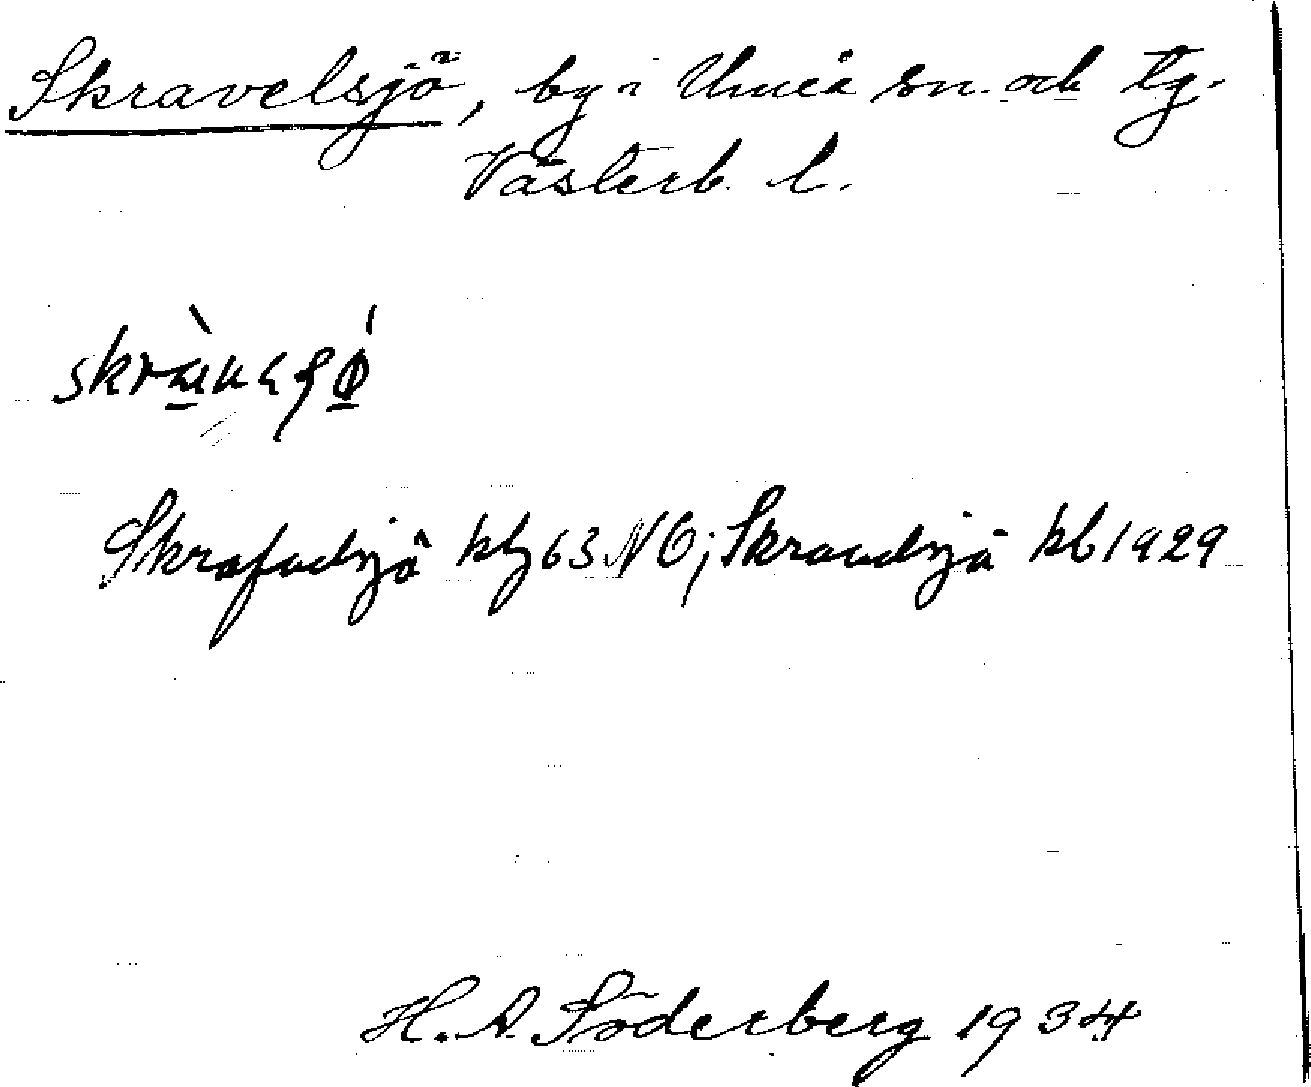 Skravelsjö, by i Umeå sn. och tg.
Västerb. l.
Skrafvelsjö kbl 63 NO; Skravelsjö kb 1929
H. A. Söderberg 1934